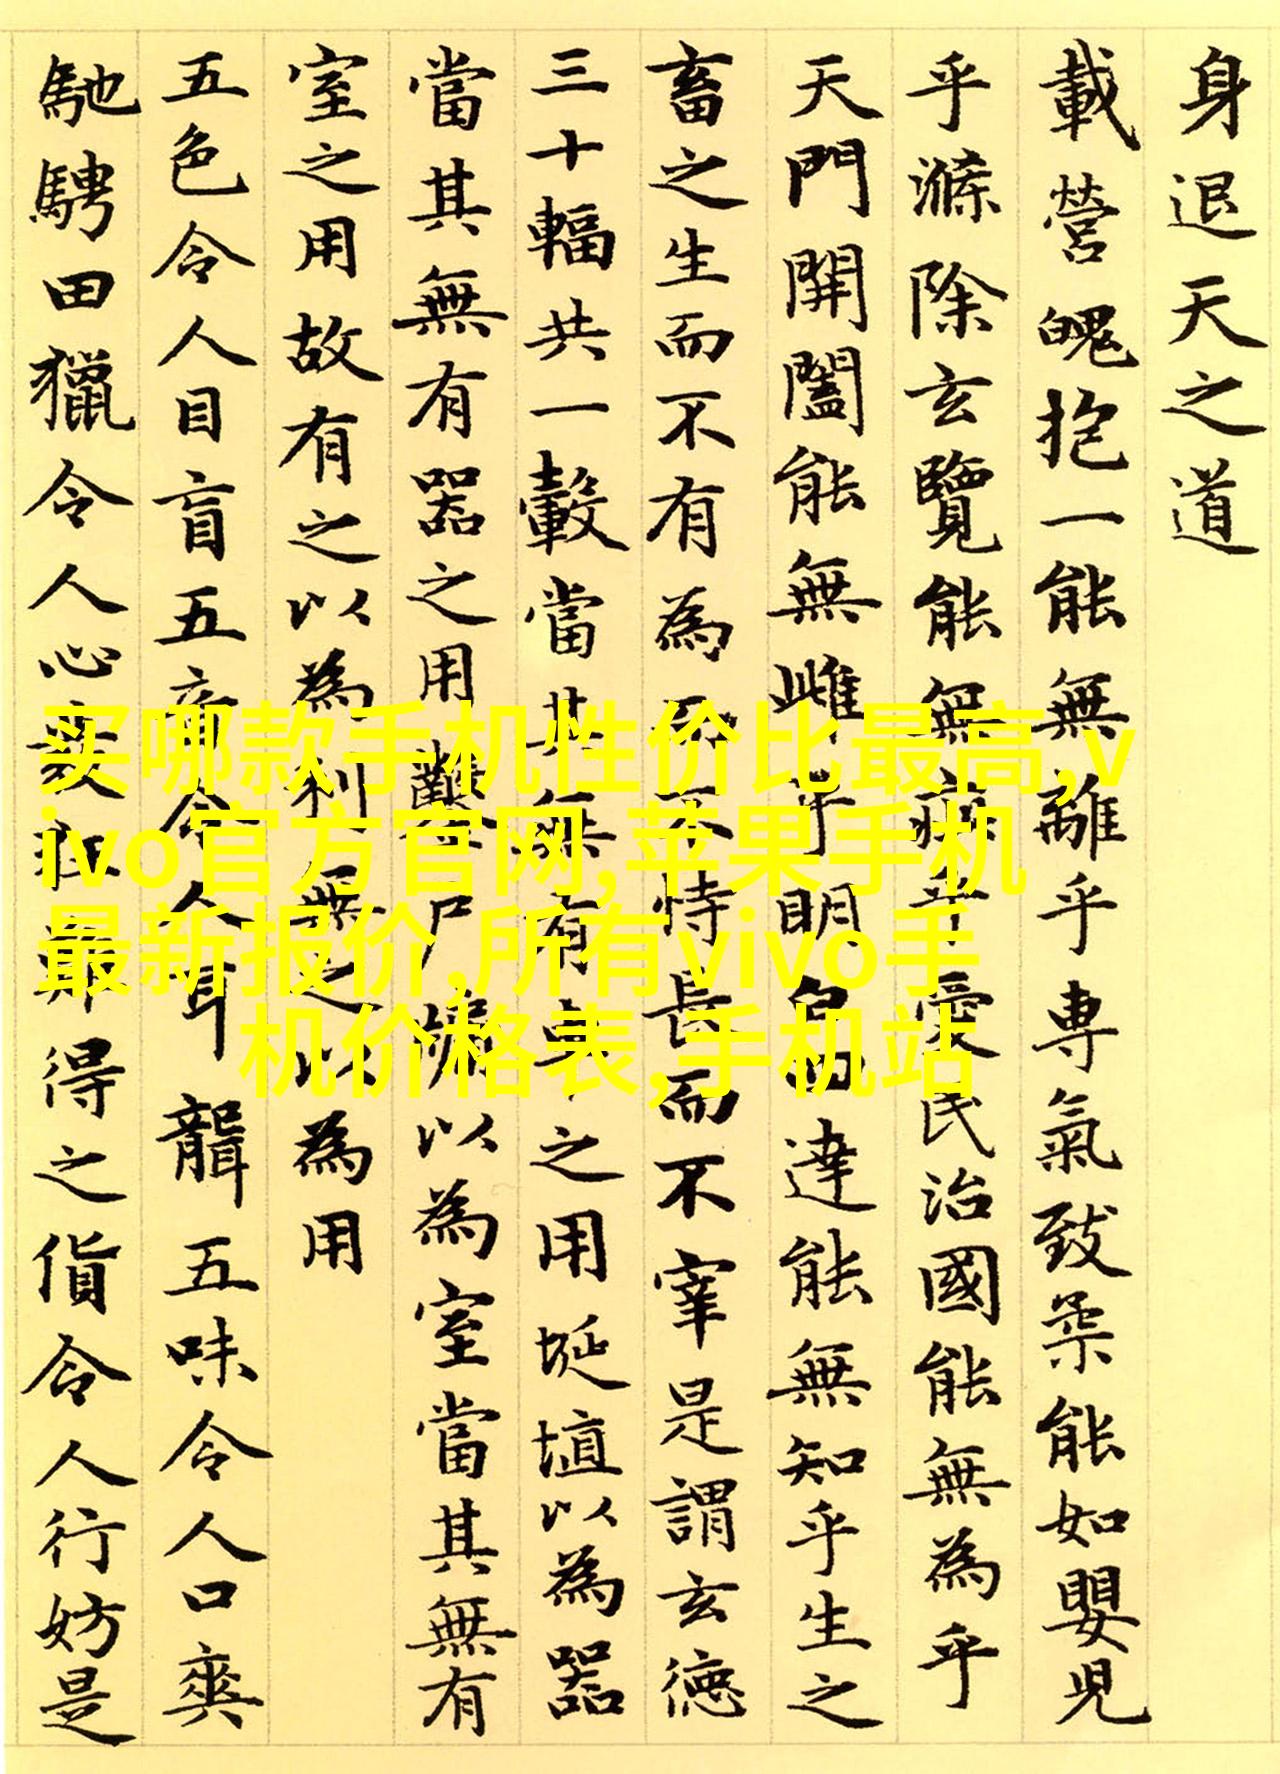 身退天之道
載營魄抱一能無離乎專氣致柔能如嬰兒
乎滌除玄覽能無疵乎愛民治國能無為乎
天門開闔能無雌乎明白四達能無知乎生之
畜之生而不有為而不恃長而不宰是謂玄德
三十輻共一轂當其無有車之用埏埴以為器
當其無有器之用鑿戶牖以為室當其無有
室之用故有之以為利無之以為用
五色令人目盲五音令人耳聾五味令人口爽
馳騁田獵令人心發狂難得之貨令人行妨是
买哪款手机性价比最高,v
ivo官方官网,苹果手机
最新报价,所有vivo手
机价格表,手机站